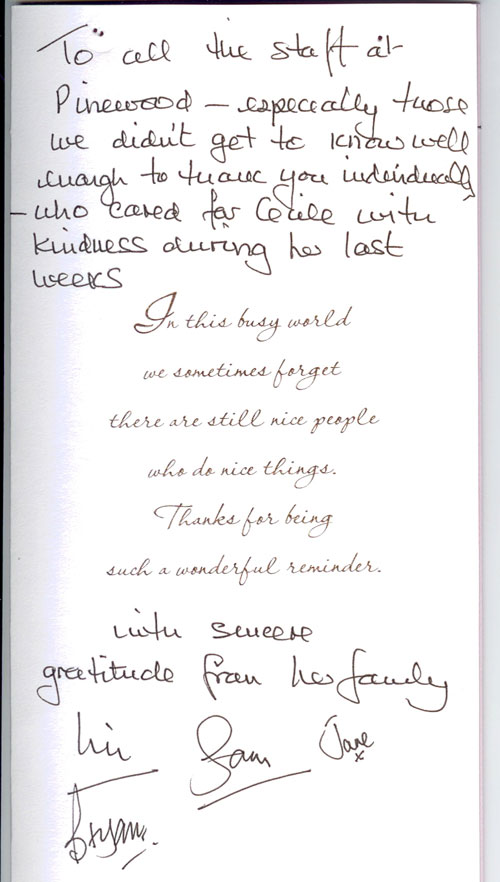 To all the staff at
Pinewood – especially those
we didn't get to know well
enough to thank you individually
– who cared for Cecile with
kindness during her last
weeks
In this busy world
we sometimes forget
there are still nice people
who do nice things.
Thanks for being
such a wonderful reminder.
with sincere
gratitude from her family
Sam Jane x